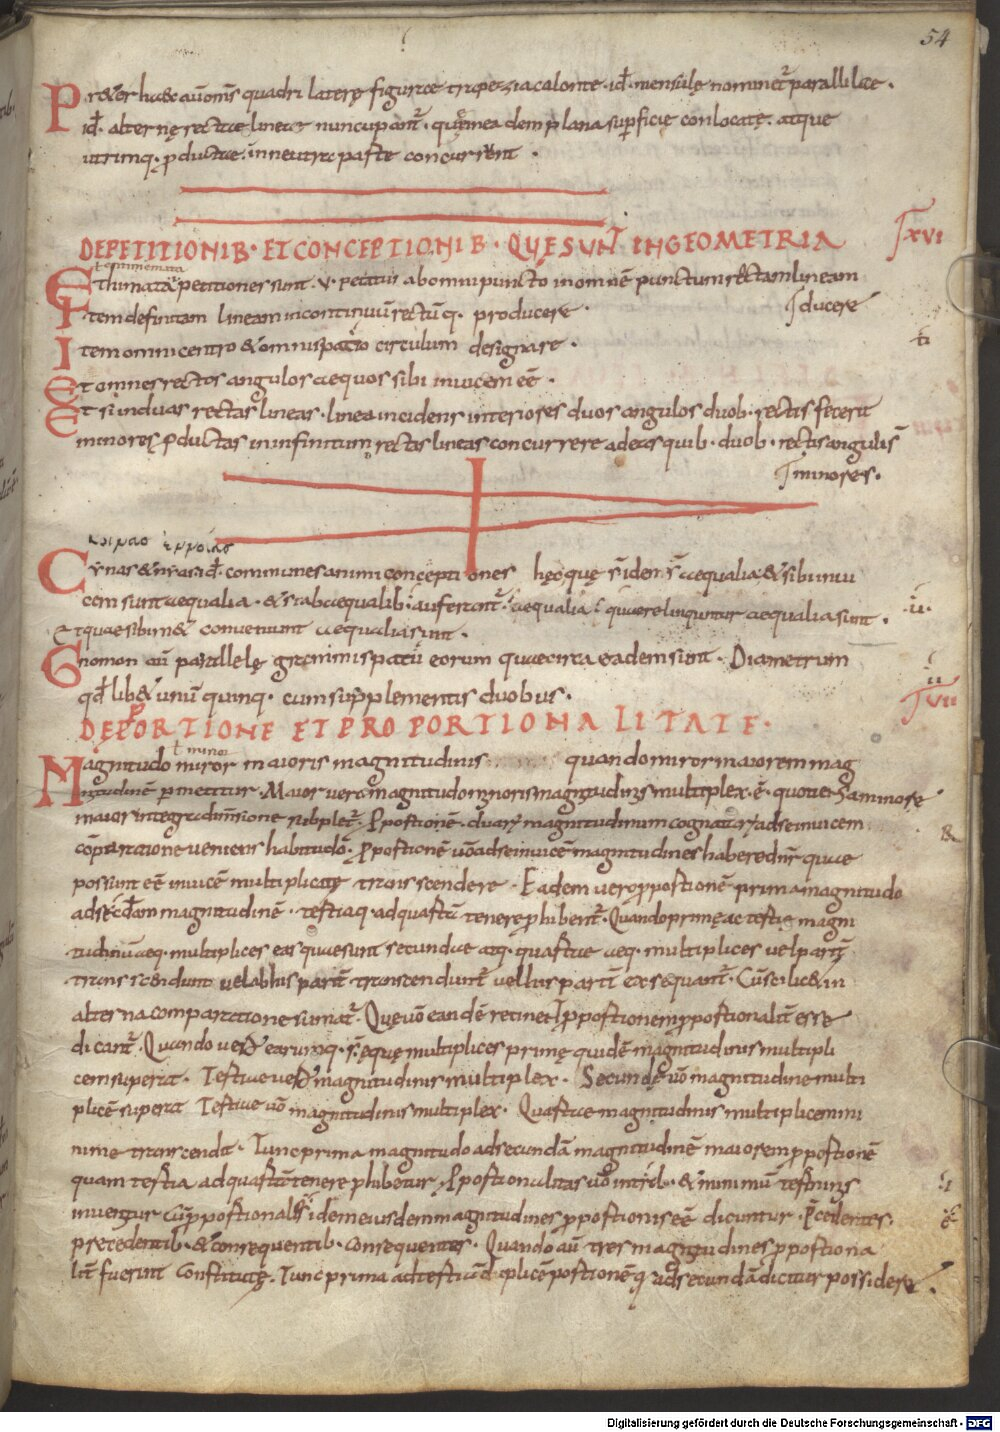 54
Pret&er hec aut oms quadri laterę figurae trapezia calontę · id · mensulę nominet parallilae ·
id · alternę rectae lineae nuncupant · quę in eadem plana supficię conlocatę · atque
utrimq · pductae · in neutra parte concurrent ·
DEPETITIONIB · ET CONCEPTIONIB · QUESUNT IN GEOMETRIA
XVI
Ethimata petitiones sunt · V · petatur ab omni puncto in omnē punctum rectam lineam
ducere
Item definitam lineam in continuū rectūq · producere ·
Item omni centro & omni spatio circulum designare ·
Et omnes rectos angulos aequos sibi inuicem eē ·
Et si in duas rectas lineas · linea incidens interiores duos angulos duob · rectis fecerit
minores pductas in infinitum rectas lineas concurrere ad eas quib · duob · rectis angulis
minores ·
Cynas & nyas id · communes animi conceptiones hęę quę
cem sunt aequalia · & si ab aequalib · auferant aequalia · quae relinquntur aequalia sunt ·
Et quae sibimet conueniunt aequalia sunt ·
Gnomon aū parallelę grammi spatii eorum quae circa eadem sunt · Diametrum
qd lib& unū quinq · cum supplementis duobus ·
VII
DE PPORTIONE ET PROPORTIONALITATE ·
ł minor
Magnitudo miror maioris magnitudinis quando miror maiorem mag
nitudinē pmetitur · Maior uero magnitudo minoris magnitudinis multiplex · ē · quotiens a minore
maior integra dimensione suppletur · Pportionē · duarū magnitudinum cognatarū ad se inuicem
cōparatione ueniens habitudo · Pportionē uō ad se inuicē magnitudines habere dnr quae
possunt eē inuicē multiplicatę transcendere · Eadem uero pportionē prima magnitudo
ad secdam magnitudinē · tertiaq · ad quartā tenere phibent · Quando primę ac tertię magni
tudinū aeq · multiplices eas quae sunt secundae atq · quartae aeq · multiplices uel pariť
transcendunt uel ab his pariť transcendunt uel his pariť exsequant · Cū scilic& in
alterna comparatione sumat · Que uō eandē retinet pportionem pportionalit esse
dicant · Quando uero earumq · s · ęque multiplices primę quidē magnitudinis multipli
cem superat · Tertiae uero magnitudinis multiplex · Secundę uō magnitudine multi
plicē superat Tertiae uō magnitudinis multiplex · Quartae magnitudinis multiplicem mi
nime transcendat · Tunc prima magnitudo ad secundā magnitudinē maiorem pportionē
quam tertia ad quartā tenere phibetur · Pportionalitas uō in trib · & minimū terminis
inuenitur Cū pportionalis idem eiusdem magnitudines pportionis eē dicuntur · Pcedentes ·
precedentib · & consequentib · consequentes · Quando aū tres magnitudines pportiona
lit fuerint constitutę · Tunc prima ad tertiū duplicē portionē q ad secundā dicitur possidere ·
Digitalisierung gefördert durch die Deutsche Forschungsgemeinschaft · DFG